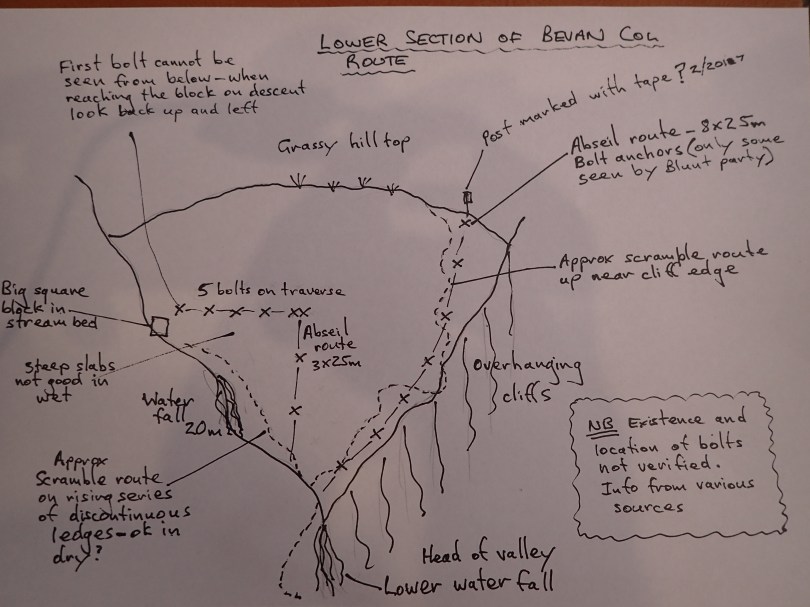 LOWER SECTION OF BEVAN COL
ROUTE
First bolt cannot be
seen from below - when
reaching the block on descent
look back up and left
Grassy hill top
Post marked with tape? 2/2018
Abseil route - 8x25m
Bolt anchors (only some
seen by Blunt party)
Approx scramble route
up near cliff edge
Big square
block in
stream bed
5 bolts on traverse
Abseil
route
3x25m
Steep slabs
not good in
wet
Water
fall
20m
Overhanging
cliffs
Approx
Scramble route
on rising series
of discontinuous
ledges - ok in
dry?
NB Existence and
location of bolts
not verified.
Info from various
sources
Head of valley
Lower water fall